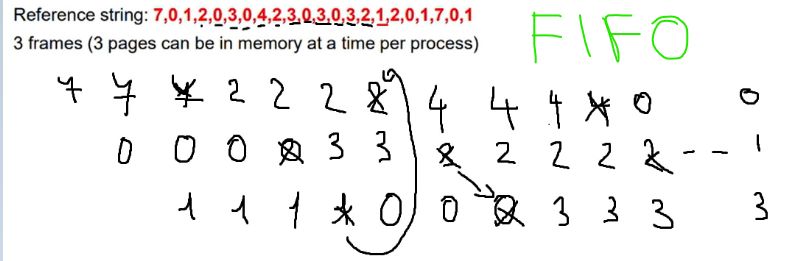 Reference string: 7,0,1,2,0,3,0,4,2,3,0,3,0,3,2,1,2,0,1,7,0,1
3 frames (3 pages can be in memory at a time per process)
FIFO
7 7 7 2 2 2 2 4 4 4 4 0 0
0 0 0 0 3 3 3 2 2 2 2 - - 1
1 1 1 1 0 0 0 3 3 3 3